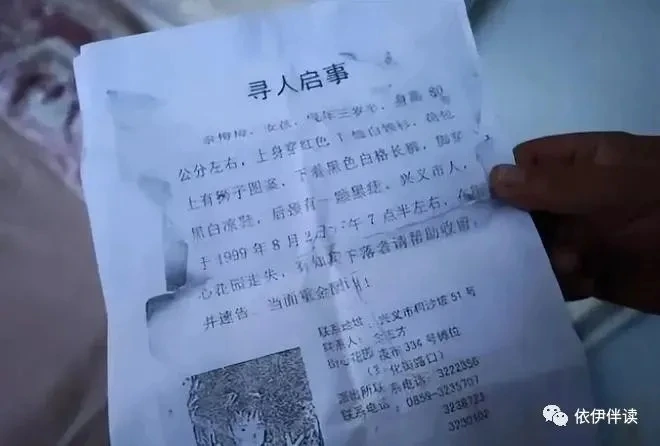 寻人启事
女孩,现年三岁半,身高
公分左右,上身穿红色T恤白领衫,
上有狮子图案,下着黑色白格长裤,脚穿
黑白凉鞋,后颈有一颗黑痣,兴义市人,
于1999年8月2 午7点半左右,在
心花园走失,有知其下落者请帮助收留,
并速告,当面重金酬谢!
联系地址:兴义市柯沙坡51号
联系人:
街心花园夜市336号摊位
化街路口)
派出所联系电话:3222356
联系电话:0859-3235707
3238723
依伊伴读